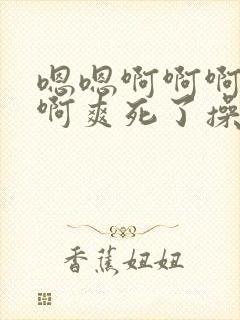 嗯嗯啊啊啊
啊爽死了操
香蕉妞妞